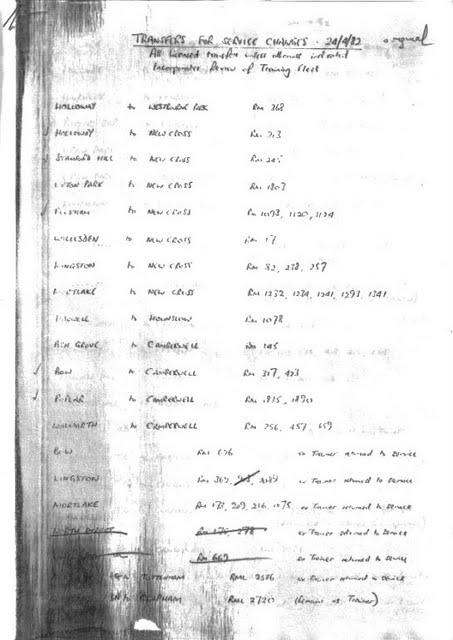 TRANSFERS FOR SERVICE CHANGES - 24/4/82 original
All licensed transfers unless otherwise indicated
Incorporates Review of Training Fleet
HOLLOWAY to WESTBOURNE PARK RM 368
HOLLOWAY to NEW CROSS RM 713
STAMFORD HILL to NEW CROSS RM
UPTON PARK to NEW CROSS RM 1807
FULHAM to NEW CROSS RM 1093, 1120, 1124
WILLESDEN to NEW CROSS RM
KINGSTON to NEW CROSS RM 82, 238, 257
MORTLAKE to NEW CROSS RM 1232, 1234, 1241, 1293, 1341
HANWELL to HOUNSLOW RM 1078
ASH GROVE to CAMBERWELL RM 145
BOW to CAMBERWELL RM 317, 423
POPLAR to CAMBERWELL RM 1835, 1890
WALWORTH to CAMBERWELL RM 256, 457, 659
BOW RM 676 ex Trainer returned to service
KINGSTON RM ex Trainer returned to service
MORTLAKE RM 173, 209, 216, 1075 ex Trainer returned to service
RM ex Trainer returned to service
RM 669 ex Trainer returned to service
TOTTENHAM RML 2586 ex Trainer returned to service
to CLAPHAM RML (Remains as Trainer)